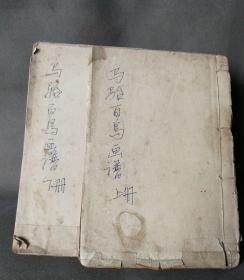 马骀百鸟画谱 上册
马骀百鸟画谱 下册